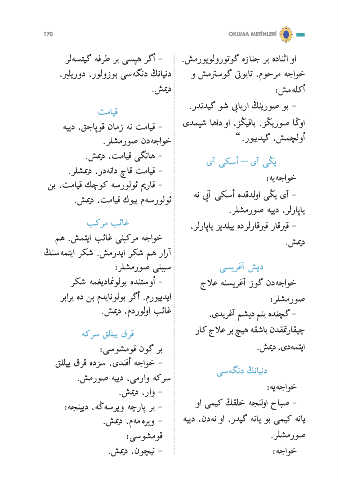 170
OKUMA METİNLERİ
او اثناده بر جنازه گوتورولویورمش.
خواجه مرحوم، تابوتی گوسترمش و
أكله‌مش:
– بو صورینڭ اربابی شو گیدندر.
اوڭا صوریڭز. باقیڭز، او داها شیمدی
اولچمش، گیدییور. “
یڭی آی – أسكی آی
خواجه‌یه:
– آی یڭی اولدقده أسكی آیی نه
یاپارلر، دییه صورمشلر.
– قیرقار قیرقارلرده ییلدیز یاپارلر،
دیمش.
دیش آغریسی
خواجه‌دن گوز آغریسنه علاج
صورمشلر:
– گچنده بنم دیشم آغریدی،
چیقارتمقدن باشقه هیچ بر علاج كار
ایتمه‌دی، دیمش.
دنیانڭ دنگه‌سی
خواجه‌یه:
– صباح اولنجه خلقڭ كیمی او
یانه كیمی بو یانه گیدر، او نه‌دن، دییه
صورمشلر.
خواجه:
– أگر هپسی بر طرفه گیتسه‌لر
دنیانڭ دنگه‌سی بوزولور، دوریلیر،
دیمش.
قیامت
– قیامت نه زمان قوپاجق، دییه
خواجه‌دن صورمشلر.
– هانگی قیامت، دیمش.
– قیامت قاچ دانه‌در، دیمشلر.
– قاریم ئولورسه كوچك قیامت، بن
ئولورسه‌م بیوك قیامت، دیمش.
غائب مركب
خواجه مركبنی غائب ایتمش. هم
آرار هم شكر ایدرمش. شكر ایتمه‌سنڭ
سببنی صورمشلر:
– أوستنده بولونمادیغمه شكر
ایدییورم. أگر بولونایدم بن ده برابر
غائب اولوردم، دیمش.
قرق ییللق سركه
بر گون قومشوسی:
– خواجه أفندی، سزده قرق ییللق
سركه وارمی، دییه صورمش.
– وار، دیمش.
– بر پارچه ویرسه‌ڭه، دیینجه:
– ویره‌مه‌م، دیمش.
قومشوسی:
– نیچون، دیمش.